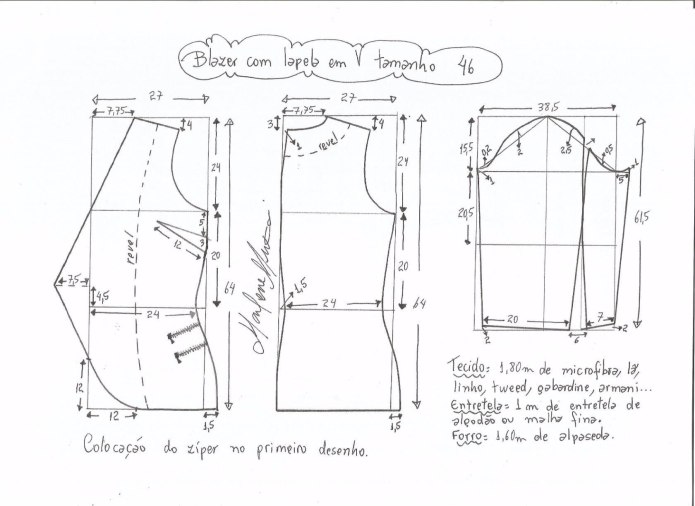 Blazer com lapela em V tamanho 46
27
7,75
4
24
revel
5
12
3
20
7,5
4,5
24
64
12
12
1,5
27
7,75
3
4
1
revel
24
20
1,5
24
64
1,5
38,5
15,5
0,2
2
2,5
0,5
1
5
20,5
61,5
20
7
2
6
2
Tecido: 1,80m de microfibra, lã,
linho, tweed, gabardine, armani...
Entretela = 1 m de entretela de
algodão ou malha fina.
Forro: 1,60m de alpaseda.
Colocação do zíper no primeiro desenho.